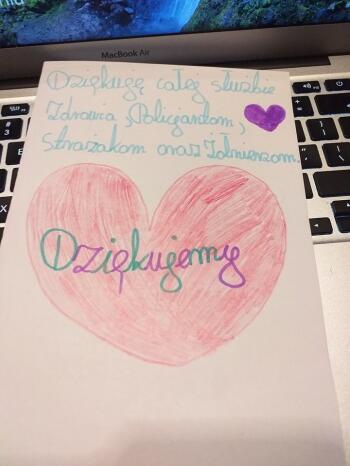 MacBook Air
Dziękuję całej służbie
Zdrowia, Policjantom,
Strażakom oraz Żołnierzom.
Dziękujemy